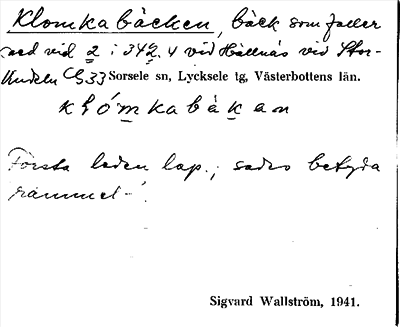 Klomkabäcken, bäck som faller
ned vid 2 i 342.4 vid Hällnäs vid Stor-
Vindeln C 33 Sorsele sn, Lycksele tg, Västerbottens län.
klómkabäkan
Första leden lap.; sades betyda
'rammel-'.
Sigvard Wallström, 1941.